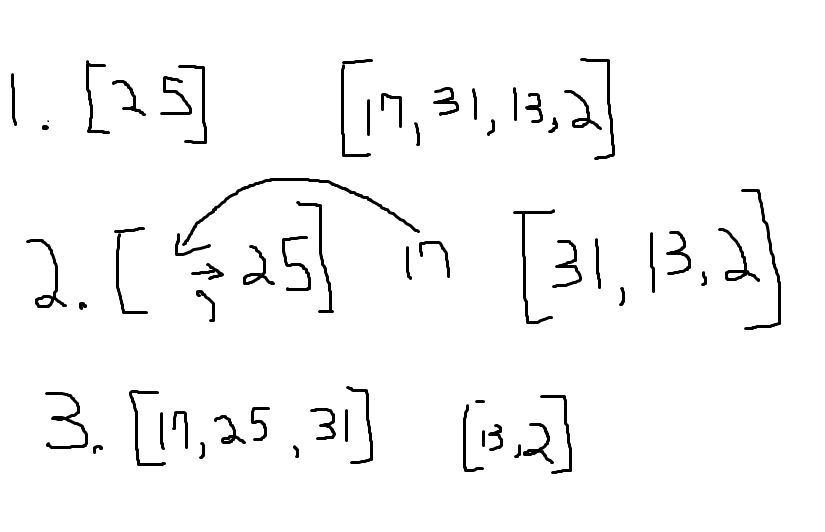 1. [25] [17, 31, 13, 2]
2. [ , 25] 17 [31, 13, 2]
3. [17, 25, 31] [13, 2]